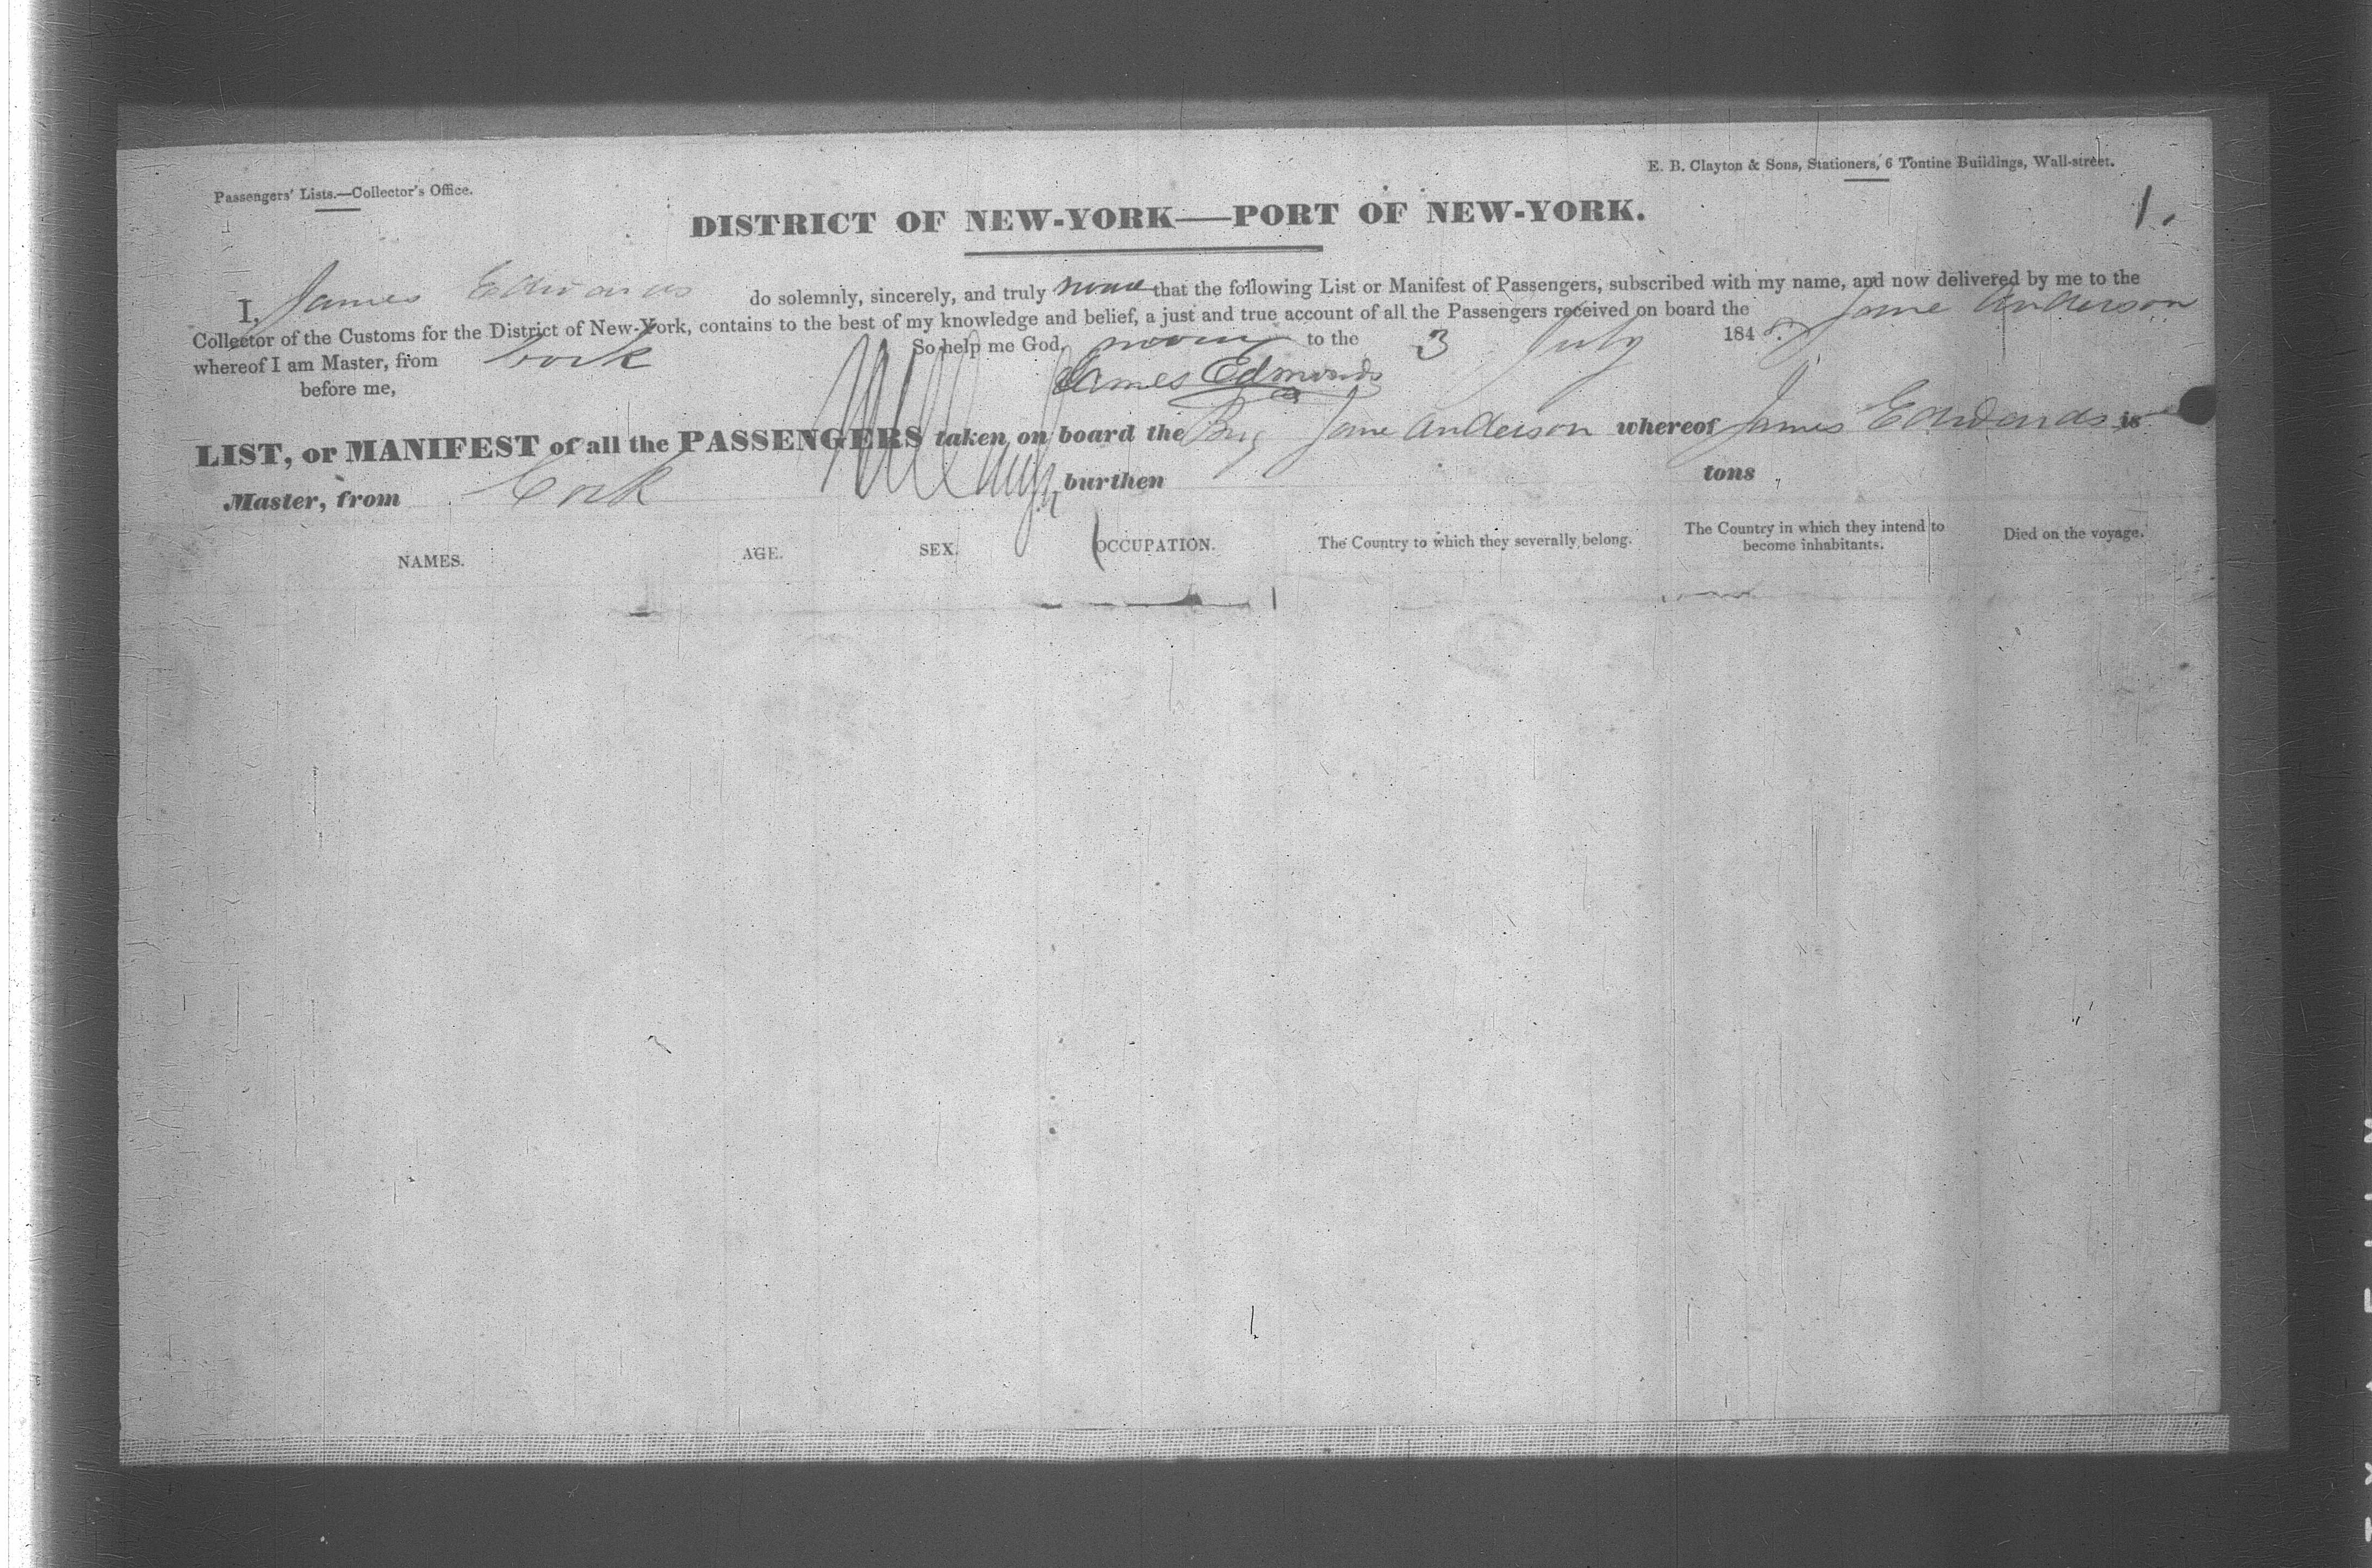 E. B. Clayton & Sons, Stationers, 6 Tontine Buildings, Wall-street.
Passengers' Lists.—Collector's Office.
1.
DISTRICT OF NEW-YORK—PORT OF NEW-YORK.
I, James Edwards do solemnly, sincerely, and truly that the following List or Manifest of Passengers, subscribed with my name, and now delivered by me to the
Collector of the Customs for the District of New-York, contains to the best of my knowledge and belief, a just and true account of all the Passengers received on board the Jane Anderson
whereof I am Master, from Cork So help me God, to the 3 July 1848.
before me, James Edmonds
LIST, or MANIFEST of all the PASSENGERS taken on board the Brig Jane Anderson whereof James Edwards is
Master, from Cork burthen tons
NAMES. AGE. SEX. OCCUPATION. The Country to which they severally belong. The Country in which they intend to become inhabitants. Died on the voyage.